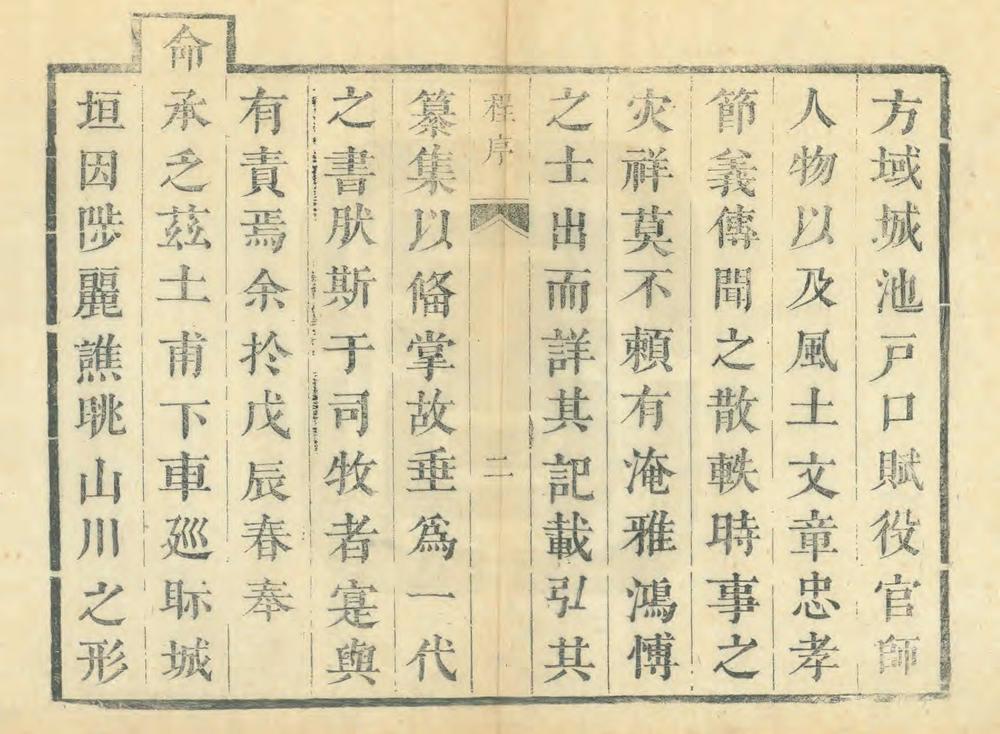 方域城池戸口賦役官師
人物以及風土文章忠孝
節義傳聞之散軼時事之
灾祥莫不頼有淹雅鴻愽
之士出而詳其記載引其
程序 二
纂集以俻掌故垂爲一代
之書肰斯于司牧者寔與
有責焉余扵戊辰春奉
命
承乏兹土甫下車廵眎城
垣因陟麗譙眺山川之形